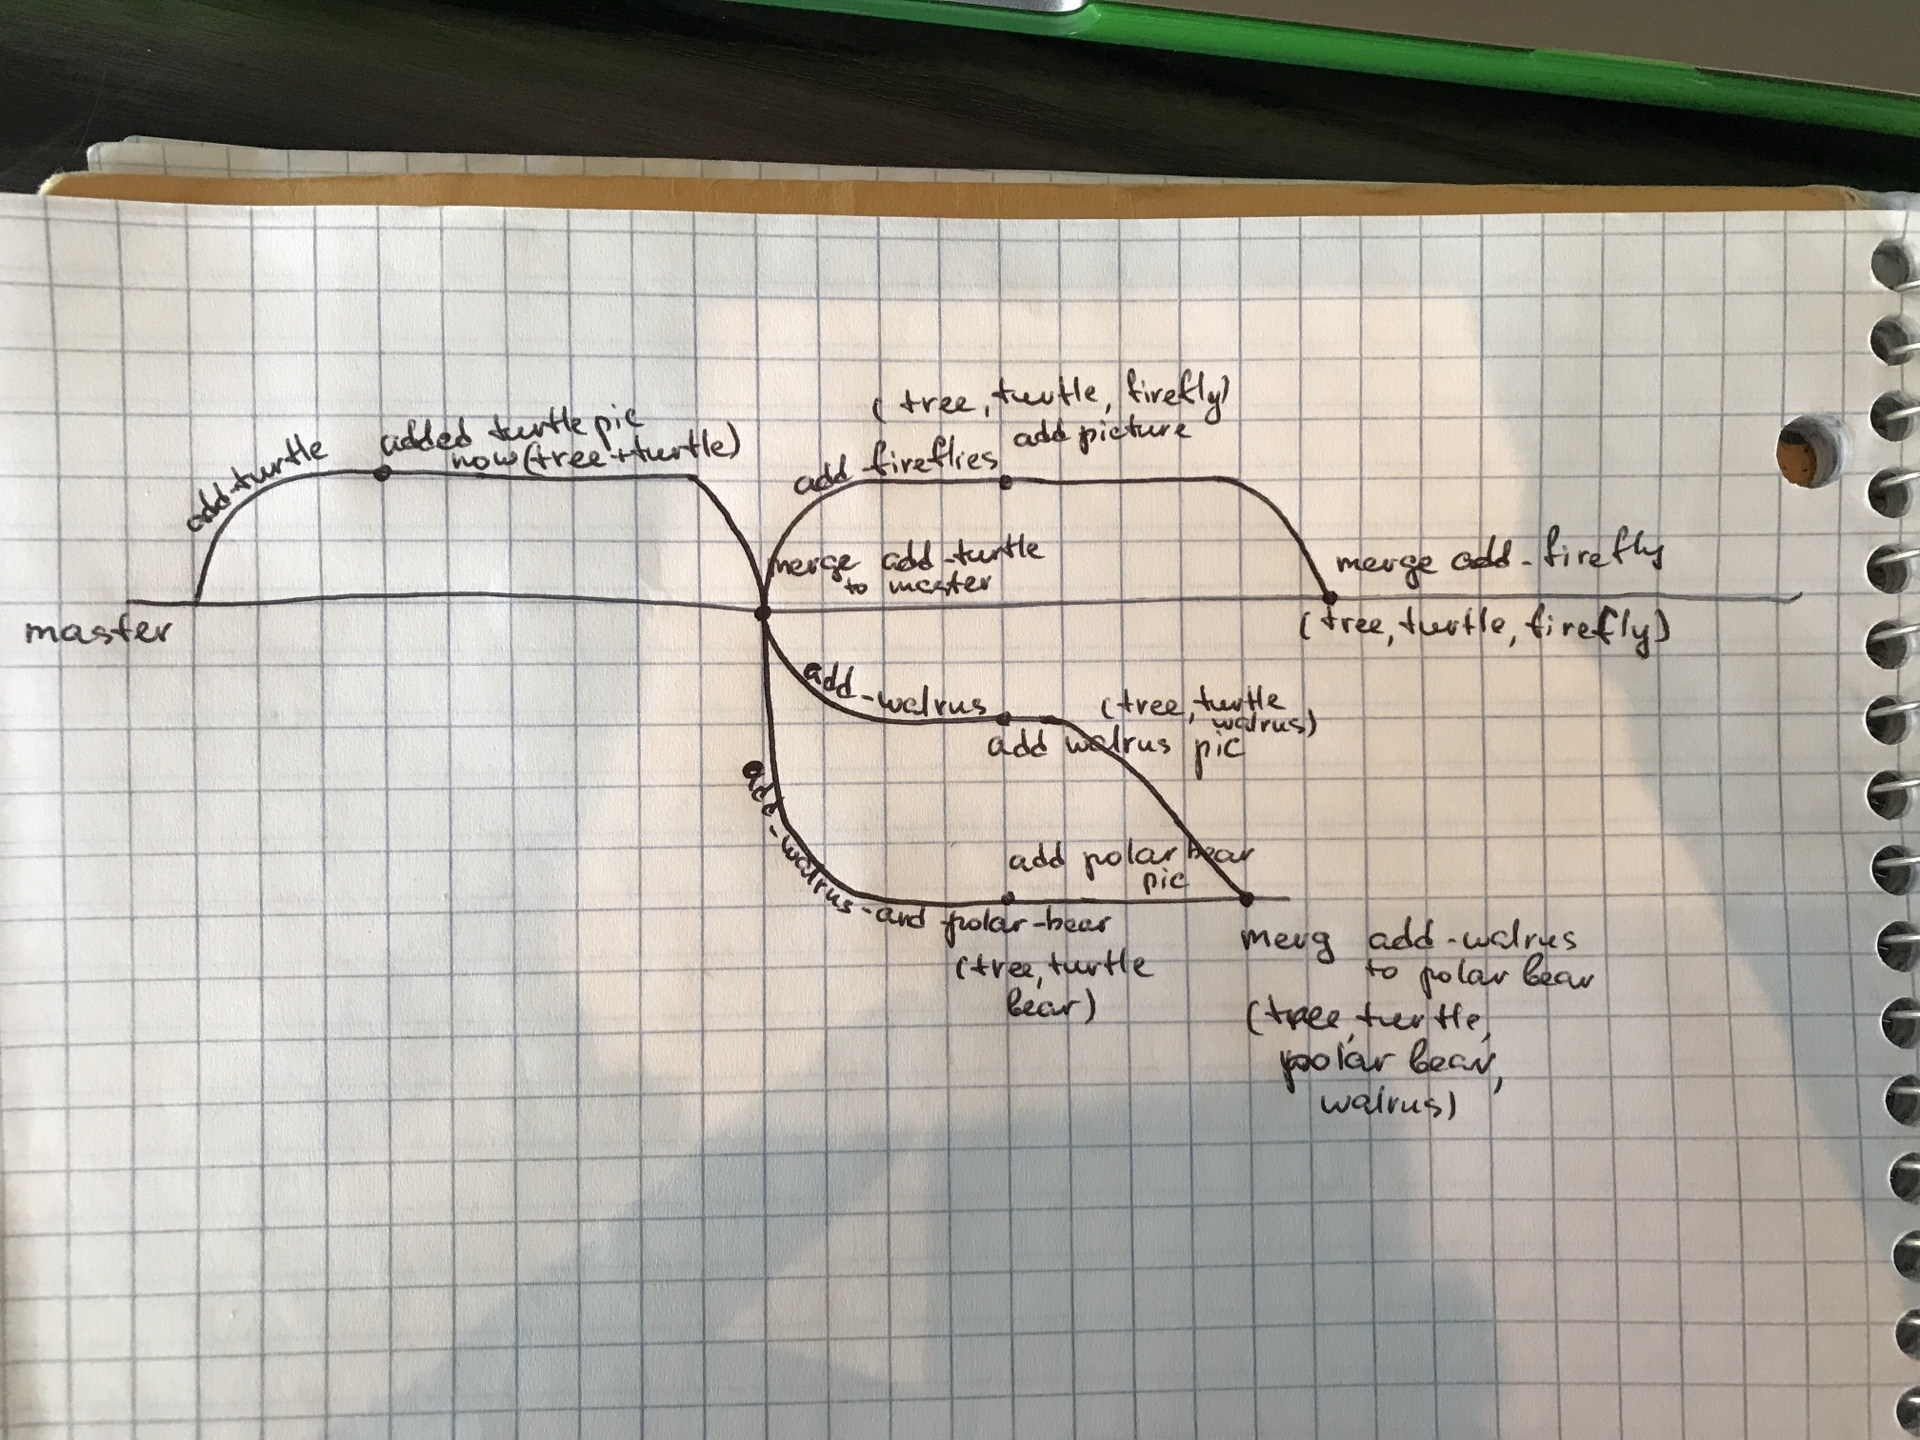 add-turtle
added turtle pic
now (tree+turtle)
(tree, turtle, firefly)
add picture
add fireflies
master
merge add-turtle
to master
merge add-firefly
(tree, turtle, firefly)
add-walrus
(tree, turtle
walrus)
add walrus pic
add-walrus-and polar-bear
add polar bear
pic
(tree, turtle
bear)
merg add-walrus
to polar bear
(tree, turtle,
polar bear,
walrus)